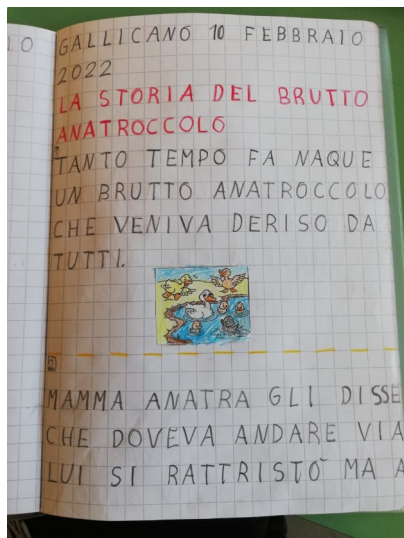 IO GALLICANO 10 FEBBRAIO
2022
LA STORIA DEL BRUTTO
ANATROCCOLO
1
TANTO TEMPO FA NAQUE
UN BRUTTO ANATROCCOLO
CHE VENIVA DERISO DA
TUTTI.
2
MAMMA ANATRA GLI DISSE
CHE DOVEVA ANDARE VIA
LUI SI RATTRISTÒ MA A